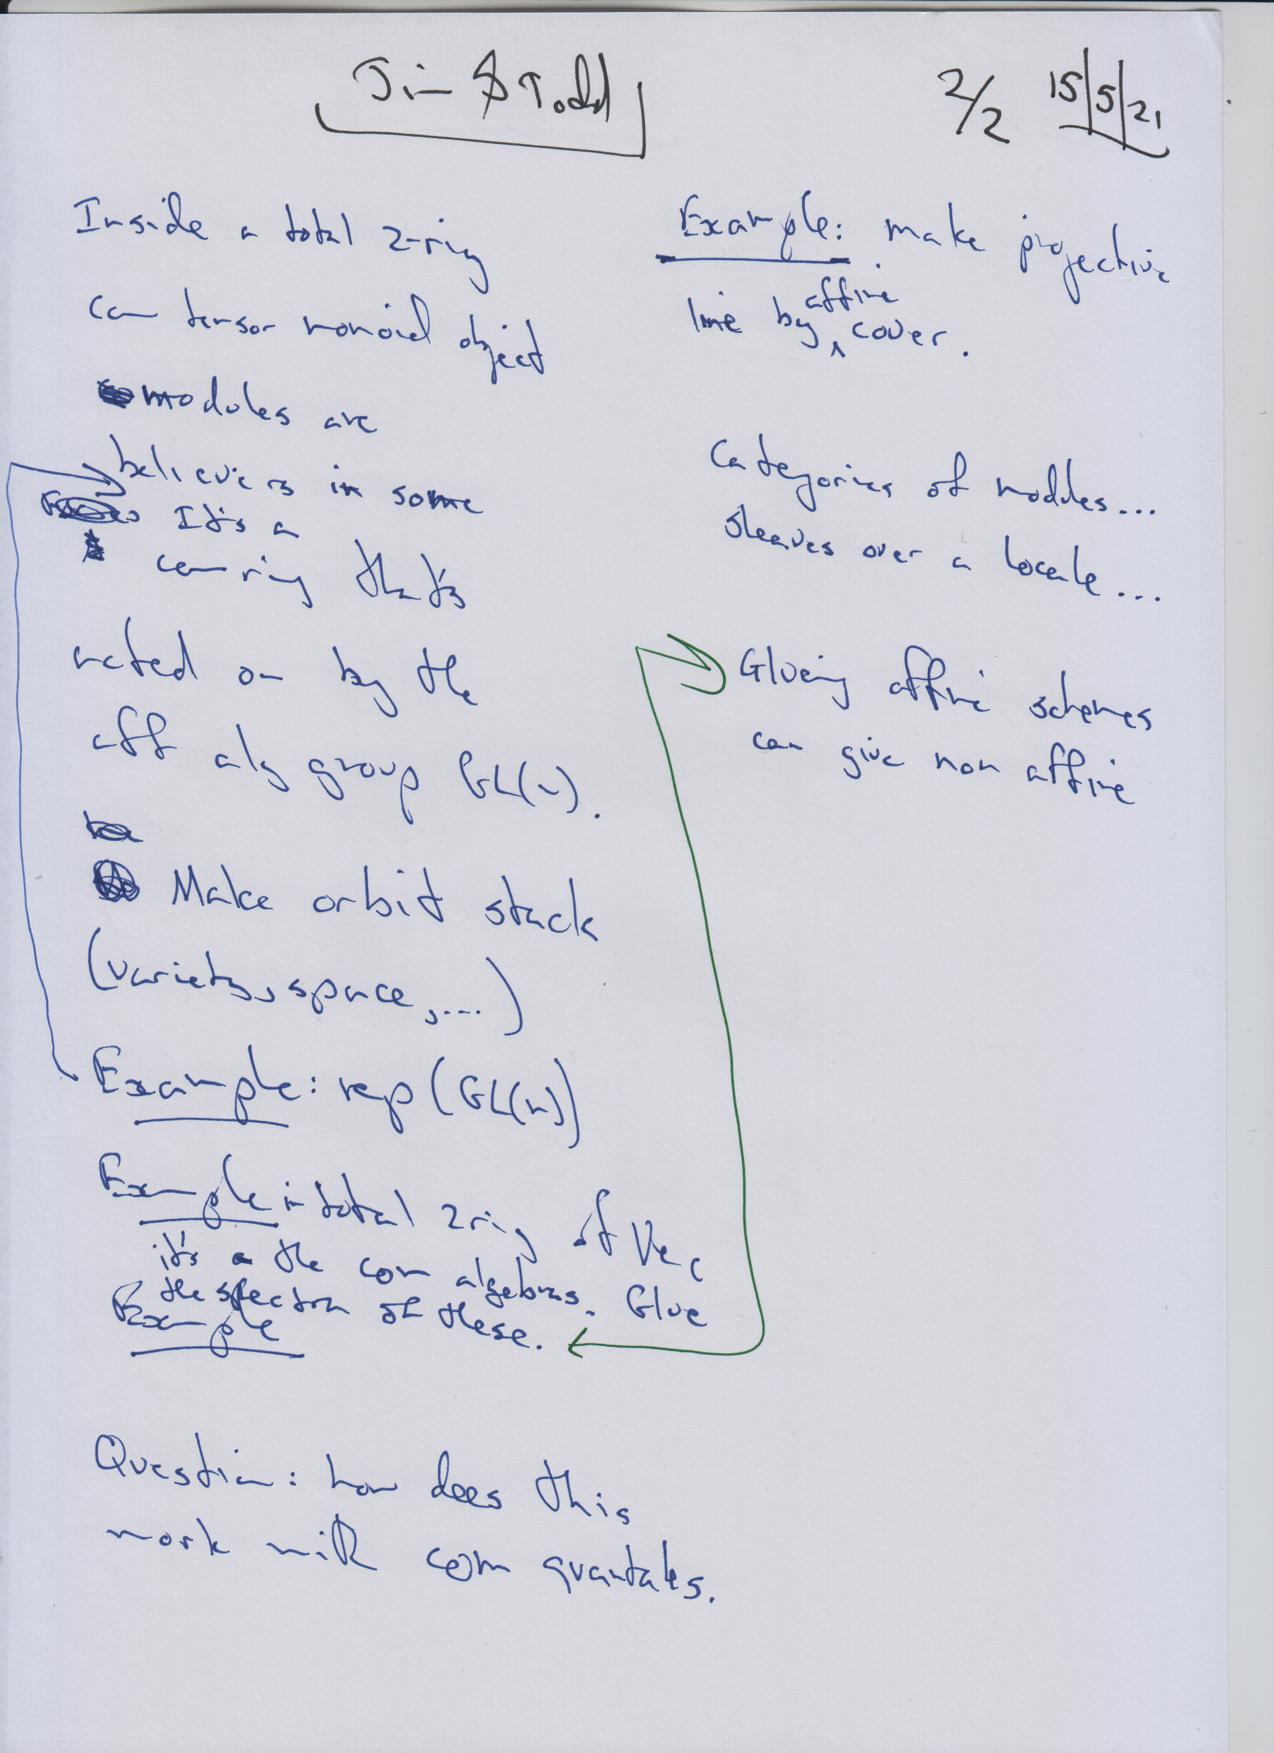 Jim & Todd
2/2 15/5/21
Inside a total 2-ring
com tensor monoid object
modules are
believers in some
It's a
com ring that's
acted on by the
aff alg group GL(n).
Make orbit stack
(variety, space, ...)
Example: rep(GL(n))
Example in total 2 ring of Vec
it's the com algebras. Glue
the spectra of these.
Example
Question: how does this
work with com quantales.
Example: make projective
line by affine cover.
Categories of modules...
sheaves over a locale...
Glueing affine schemes
can give non affine